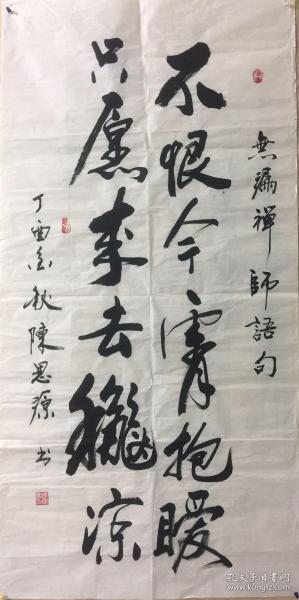 無漏禪師語句
不恨今宵抱暖
只愿来去龝凉
丁酉金秋陳思源书
孔夫子旧书网